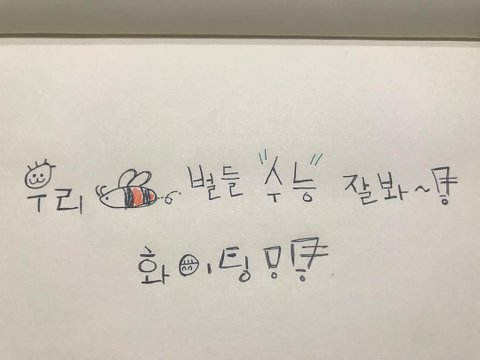 우리 별들 "수능" 잘봐~
화이팅